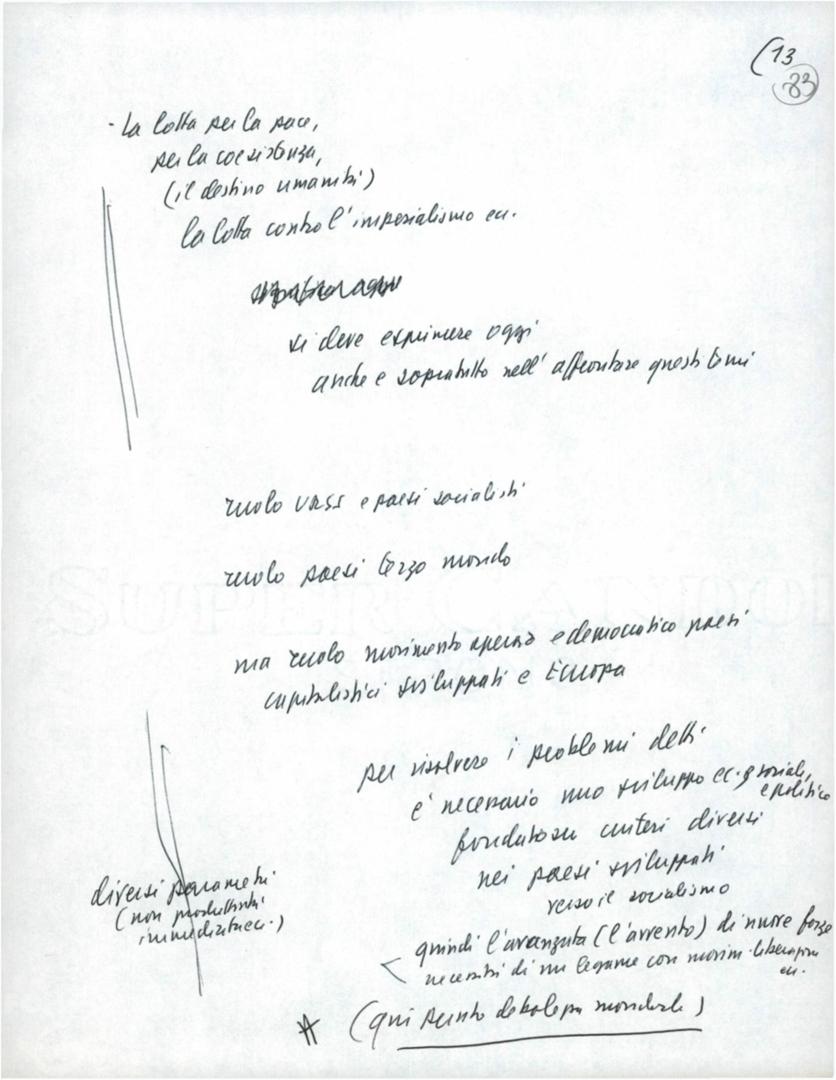 (13
33
- La lotta per la pace,
per la coesistenza,
(il destino umanità)
la lotta contro l'imperialismo ecc.
si deve esprimere oggi
anche e sopratutto nell'affrontare questi temi
ruolo URSS e paesi socialisti
ruolo paesi terzo mondo
ma ruolo movimento operaio e democratico paesi
capitalistici sviluppati e Europa
per risolvere i problemi detti
è necessario uno sviluppo ec. e sociale,
e politico
fondato su criteri diversi
nei paesi sviluppati
verso il socialismo
diversi parametri
(non produttivi
immediat ecc.)
quindi l'avanzata (l'avvento) di nuove forze
necessità di un legame con movim. liberazione
ecc.
(qui punto debolezza mondiale)